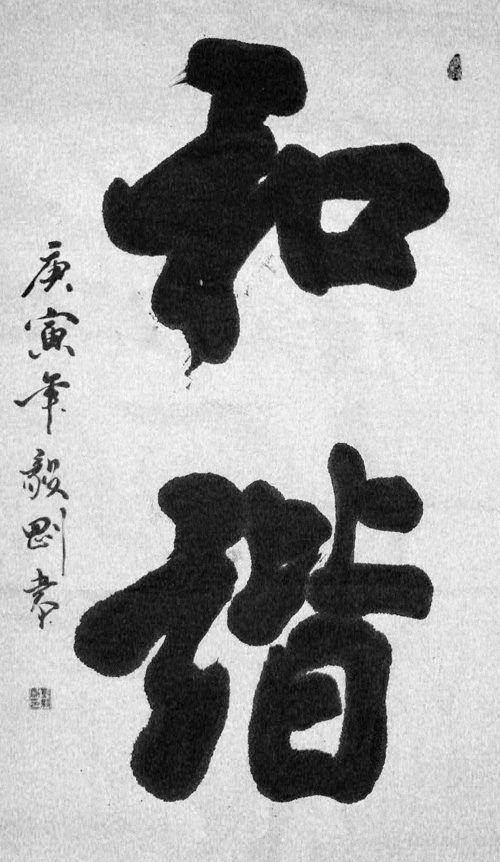 和谐
庚寅年毅刚书